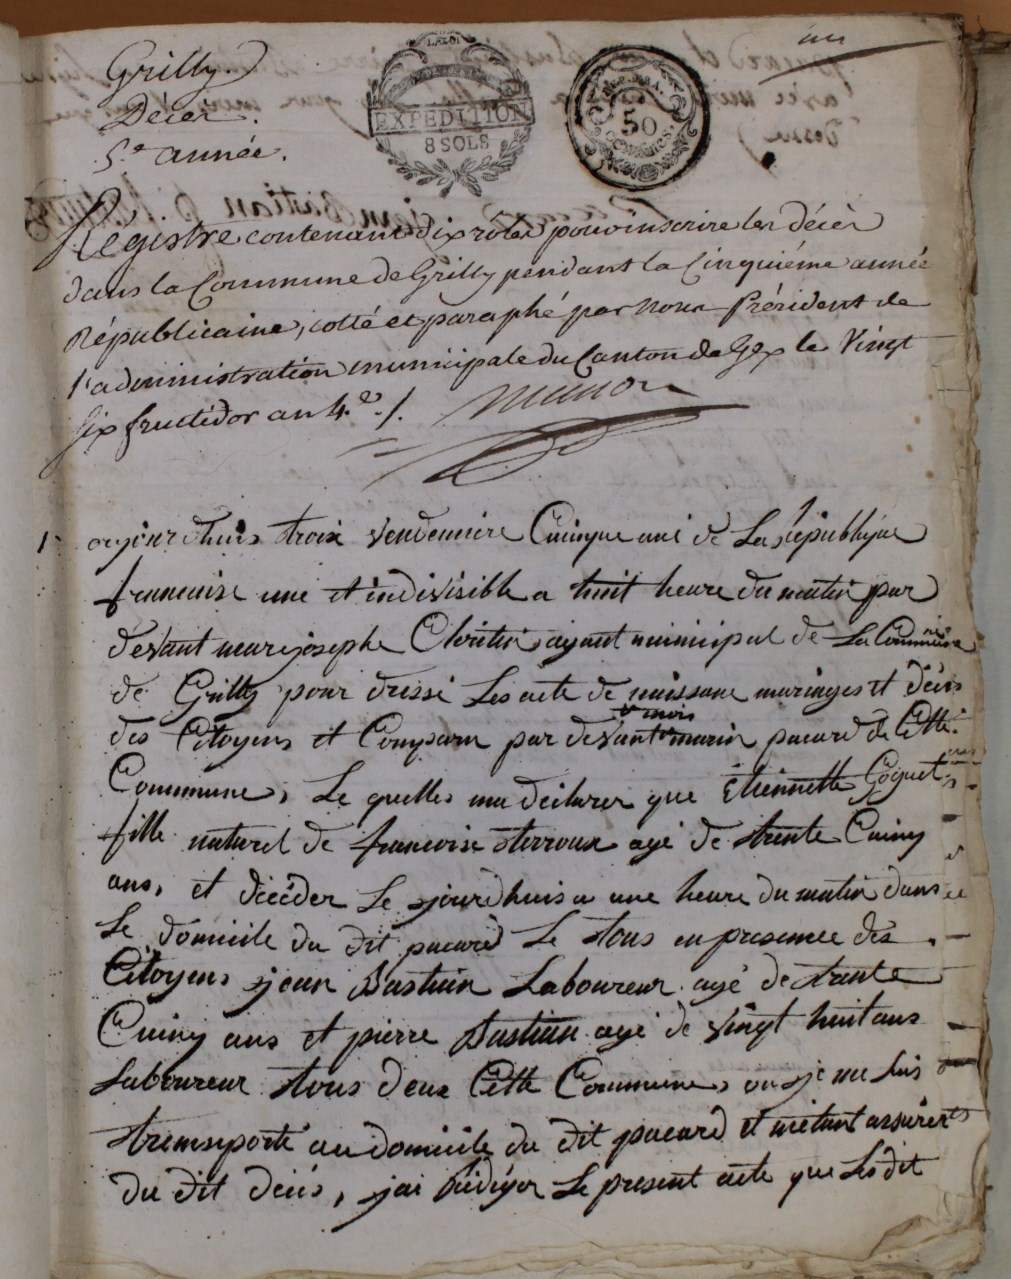 un
Grilly
Décès.
5.e année.
LA LOI
EXPEDITION
8 SOLS
50
CENTIMES.
Registre contenant dix rôles pour inscrire les décès
dans la Commune de Grilly pendant la Cinquiéme année
Républicaine, cotté et paraphé par nous Président de
l'administration municipale du Canton de Gex le Vingt
six fructidor an 4.e /.
1 oujourdhuis troix vendemiere Cuinque ane de La republique
francaise une et indivisible a huit heure du matin par
devant mear joseph Chretin ajant municipal de La Commune
de Grilly pour dressé Les acte de naissane mariages et décés
des Citoyens et Comparu par devant moix marin pacard de Cette
Commune, Le quelles ma déclarer que Etiennette Goquet
fille naturel de francoise terroux agé de trante Cuinq
ans, et décéder Le sjourdhuis a une heure du matin dans
Le domicile du dit pacard Le tous en presence des
Citoyens jean Bastian Laboureur agé de trante
Cuinq ans et pierre Bastian agé de vingt huit ans
Laboureur tous deux Cette Commune, ou je me suis
transporté au domicile du dit pacard et métant assurér
du dit décés, jai Rédiger Le present acte que Les dit